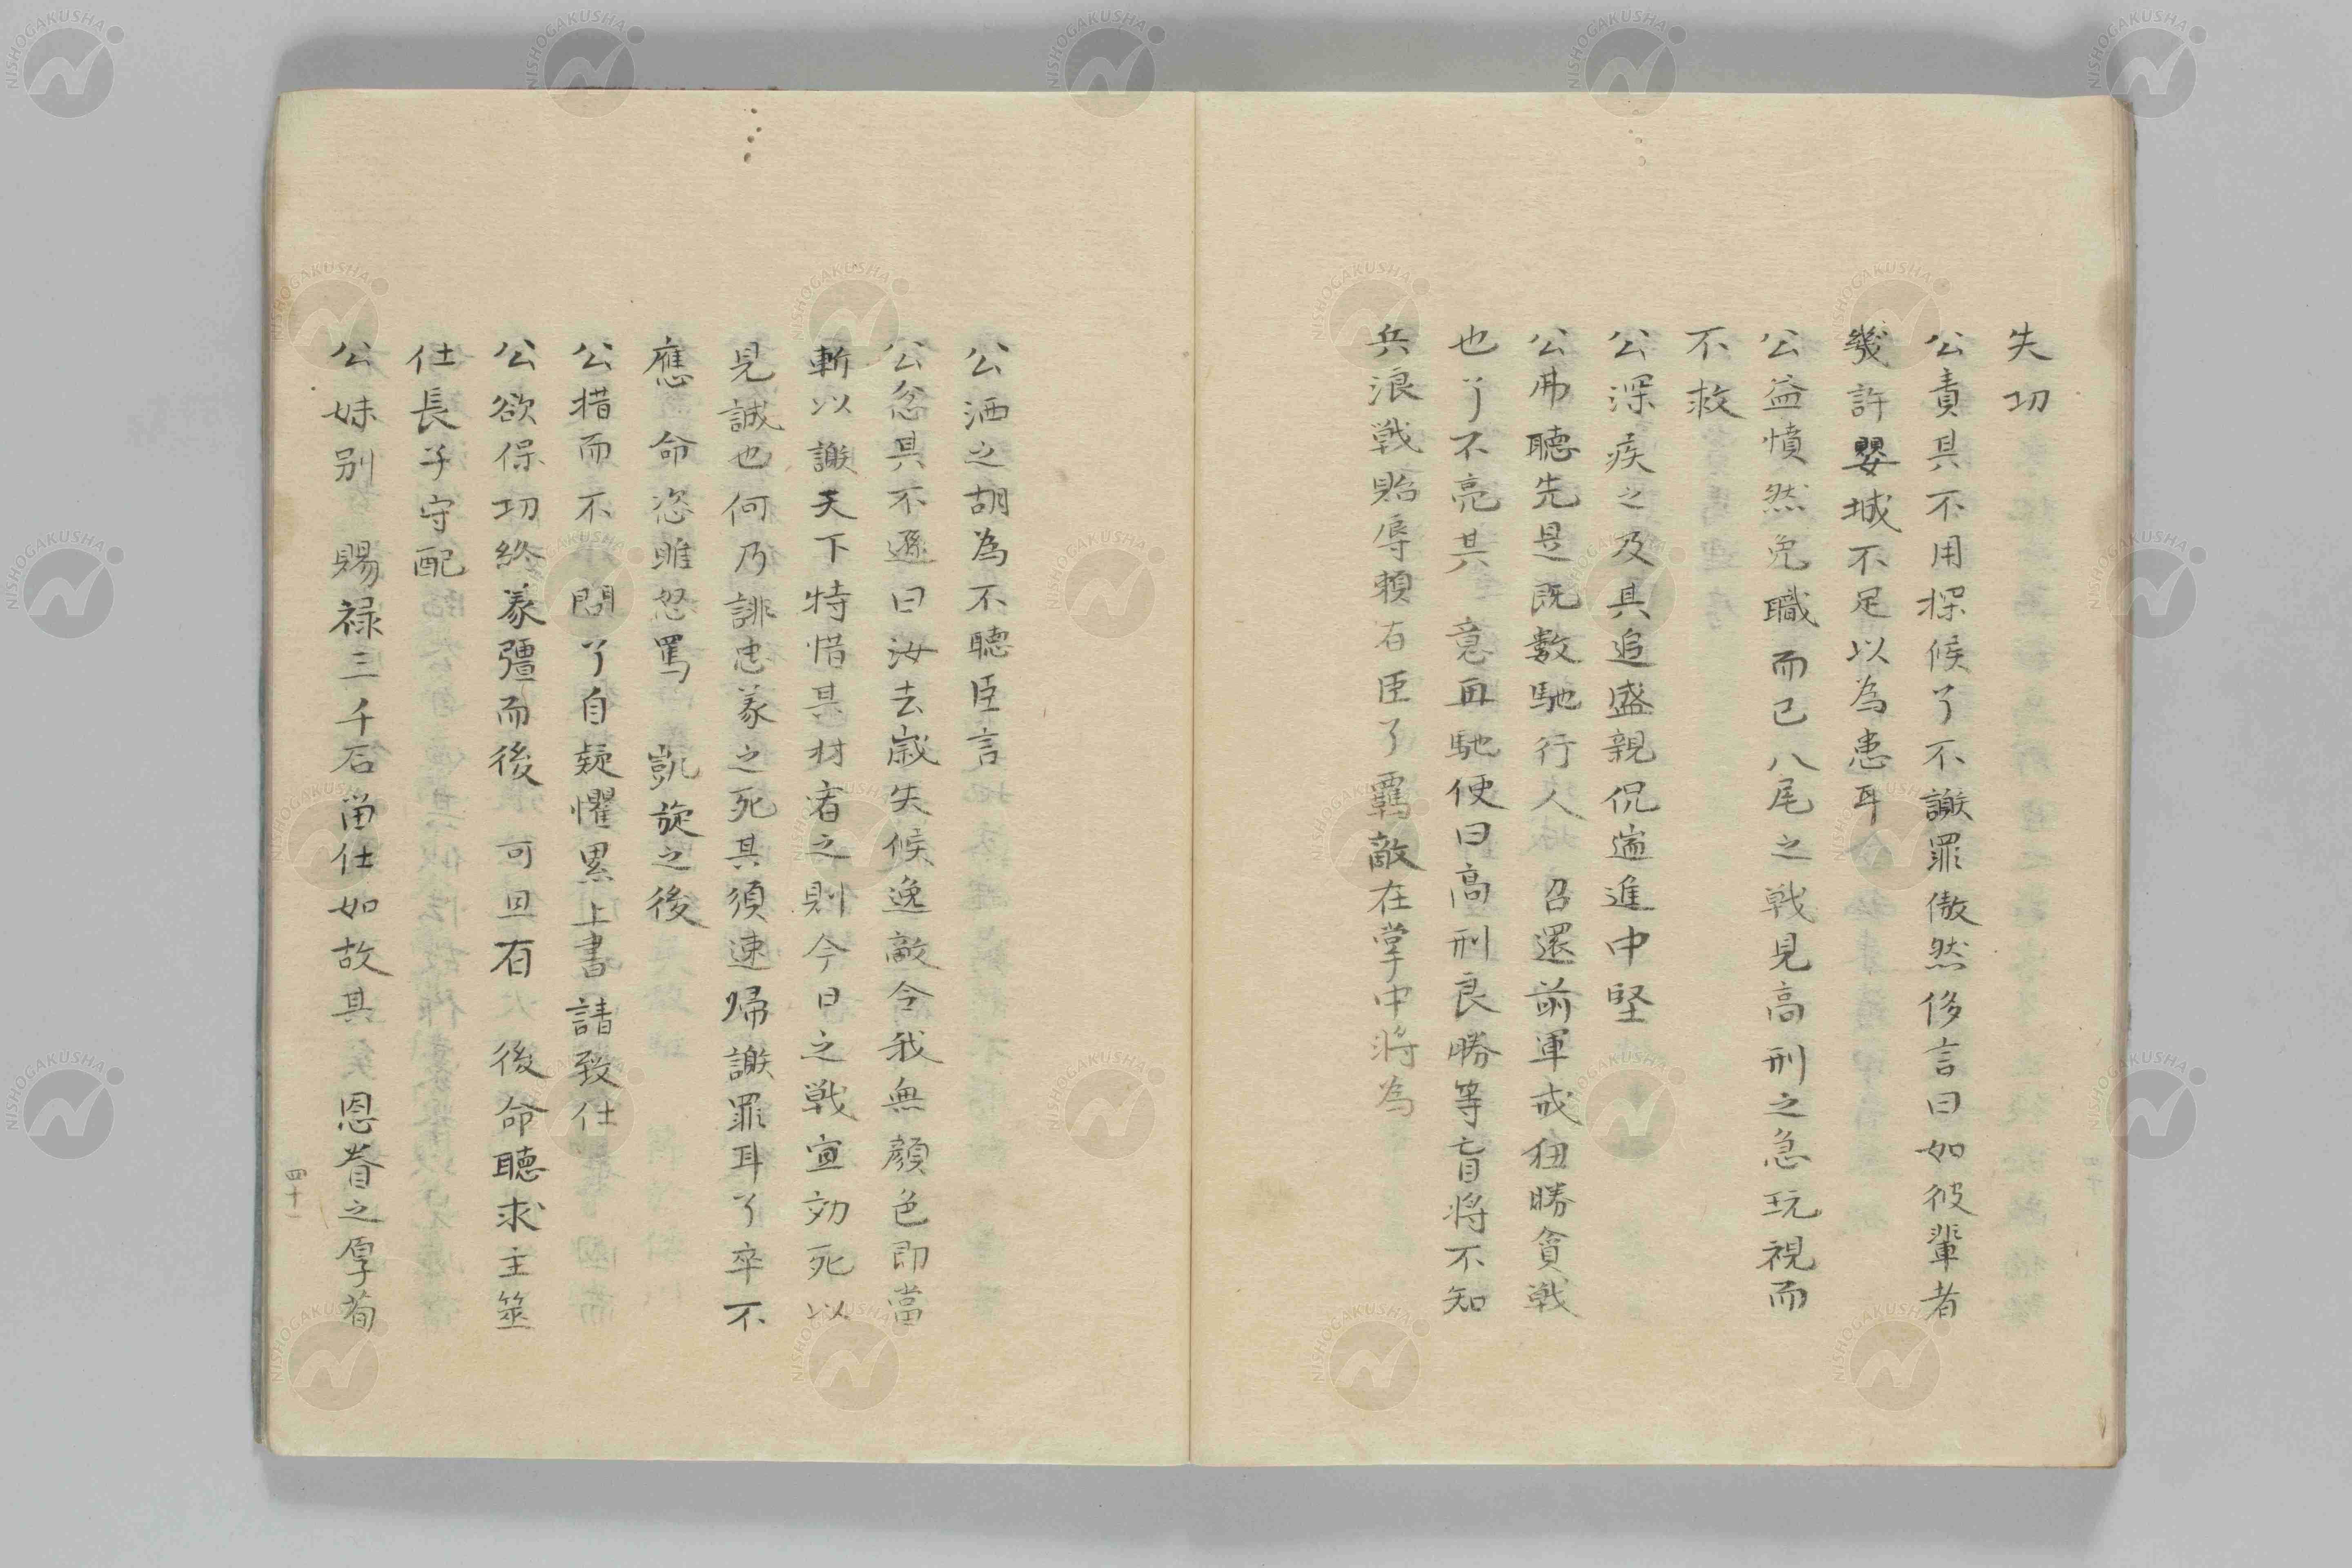 失功
公責其不用探候了不謝罪傲然侈言曰如彼輩者
幾許嬰城不足以為患耳
公益憤然免職而已八尾之戦見高刑之急玩視而
不救
公深疾之及其追盛親侃遄進中堅
公弗聴先是既數馳行人 召還前軍戒狃勝貪戦
也了不亮其 意面馳使曰高刑良勝等盲將不知
兵浪戦貽辱頼有臣了羈敵在掌中將為
公洒之胡為不聴臣言
公忿其不遜曰汝去歳失候逸敵令我無顔色即當
斬以謝天下特惜其材宥之則今日之戦宣効死以
見誠也何乃誹忠義之死其須速帰謝罪耳了卒不
應命恣睢怒罵 凱旋之後
公措而不問了自疑懼累上書請致仕
公欲保功終養彊而後 可且有 後命聴求主筮
仕長子守配
公妹別 賜禄三千石留仕如故其 恩眷之厚苟
四十一
NISHOGAKUSHA